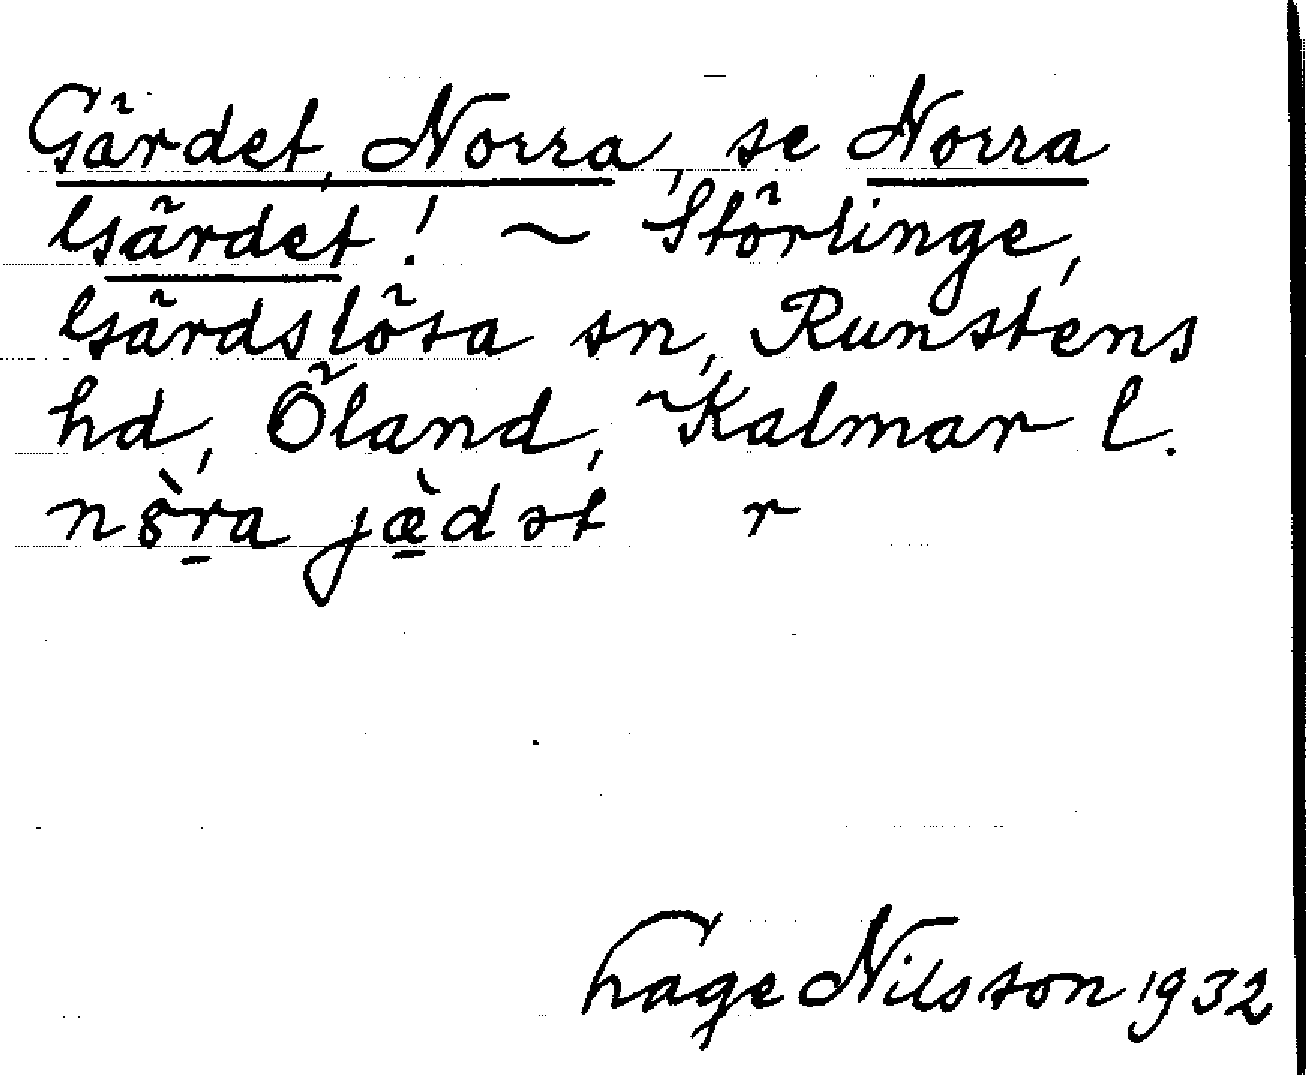 Gärdet, Norra, se Norra
Gärdet! ~ Störlinge,
Gärdslösa sn, Runstens
hd, Öland, Kalmar l.
nòra jæ̀dət r
Lage Nilsson 1932